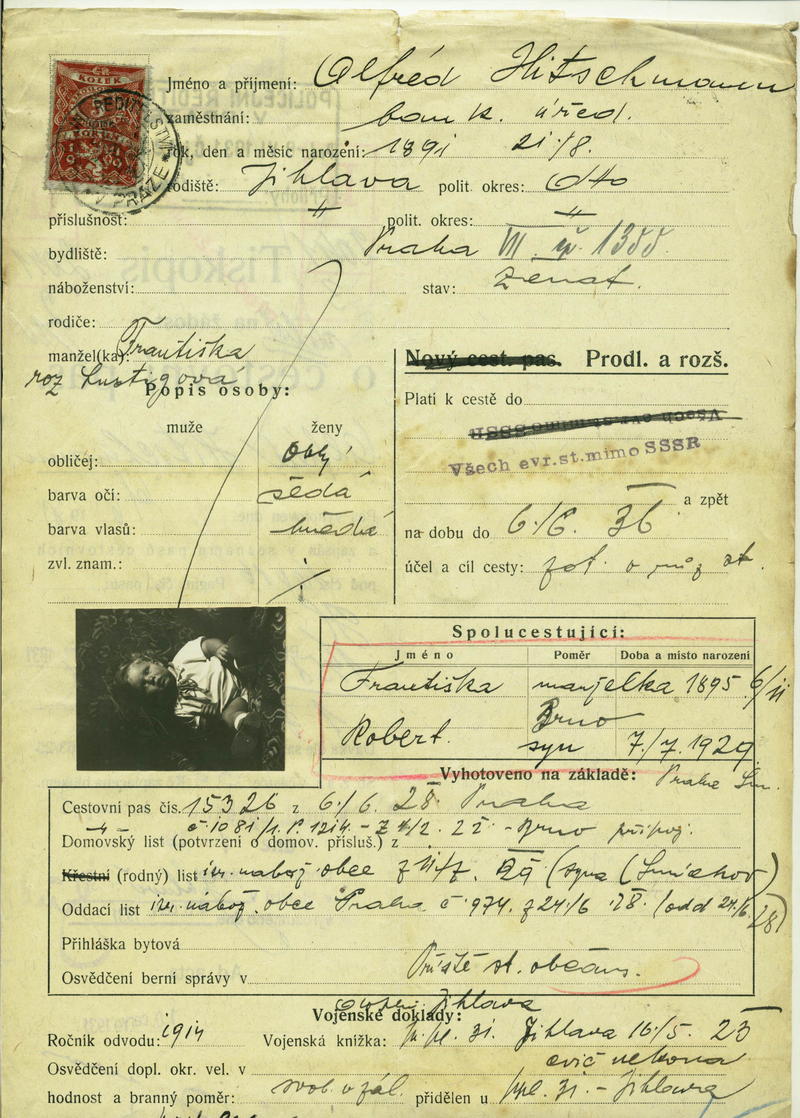 Jméno a příjmení: Alfréd Hitschmann
zaměstnání: bank. úřed.
rok, den a měsíc narození: 1891 21/8.
rodiště: Jihlava polit. okres: dtto
příslušnost: " polit. okres: "
bydliště: Praha VII. čp. 1355.
náboženství: stav: ženat.
rodiče:
manžel(ka): Františka
roz Lustigová
Popis osoby:
muže ženy
obličej: oblý
barva očí: šedá
barva vlasů: hnědá
zvl. znam.:
Nový cest. pas. Prodl. a rozš.
Platí k cestě do
Všech evr.st.mimo SSSR
Všech evr.st.mimo SSSR
a zpět
na dobu do 6./6. 36
účel a cíl cesty:
KOLEK
ŘEDITELSTVÍ
V PRAZE
Spolucestující:
Jméno Poměr Doba a místo narození
Františka manželka 1895 6/11
Brno
Robert syn 7./7. 1929
Vyhotoveno na základě: Praha Sm.
Cestovní pas čís. 15326 z 6./6. 28. Praha
Domovský list (potvrzení o domov. přísluš.) z
č 1081/1. P. 1214 - Z 22 - Brno
Křestní (rodný) list isr. nábož. obce z (syna (Smíchov)
Oddací list isr. nábož. obce Praha č 974. z 24/6 28. (odd 24/6. 28)
Přihláška bytová
Osvědčení berní správy v st. občans.
Vojenské doklady:
Ročník odvodu: 1914 Vojenská kniha: pl. 31. Jihlava 16/5. 23
Osvědčení dopl. okr. vel. v cvič nekona
hodnost a branný poměr: svob. v zál. přidělen u pl. 31. - Jihlava